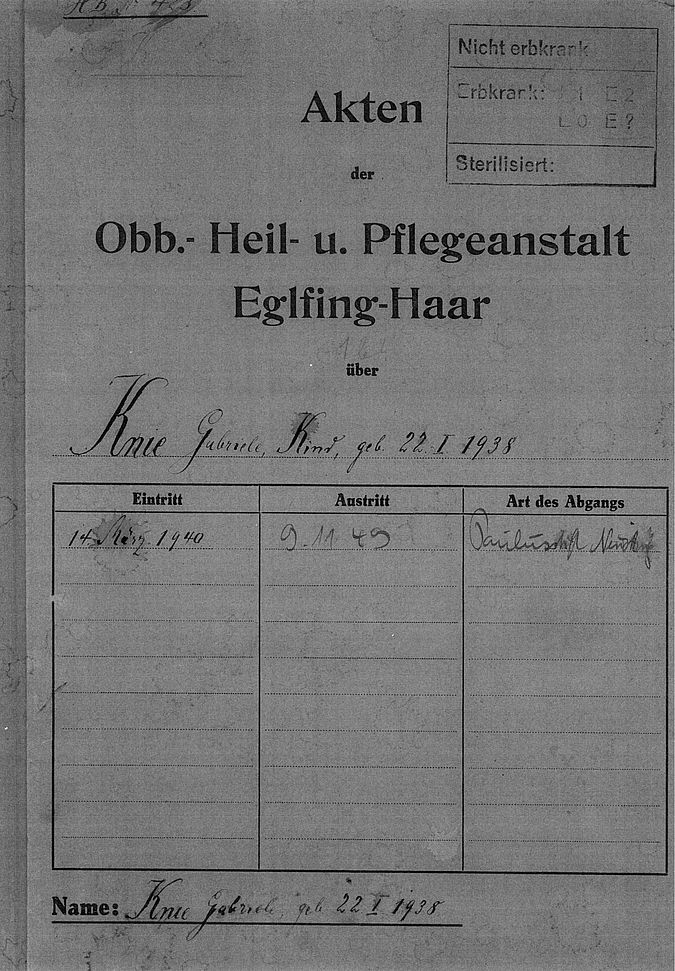 Nicht erbkrank
Erbkrank: E 1 E 2
L 0 E ?
Sterilisiert:
Akten
der
Obb.- Heil- u. Pflegeanstalt
Eglfing-Haar
über
Knie Gabriele, Kind, geb. 22. I. 1938
Eintritt Austritt Art des Abgangs
14. März 1940 9. 11 49 Paulusstift
Name: Knie Gabriele, geb. 22 I 1938